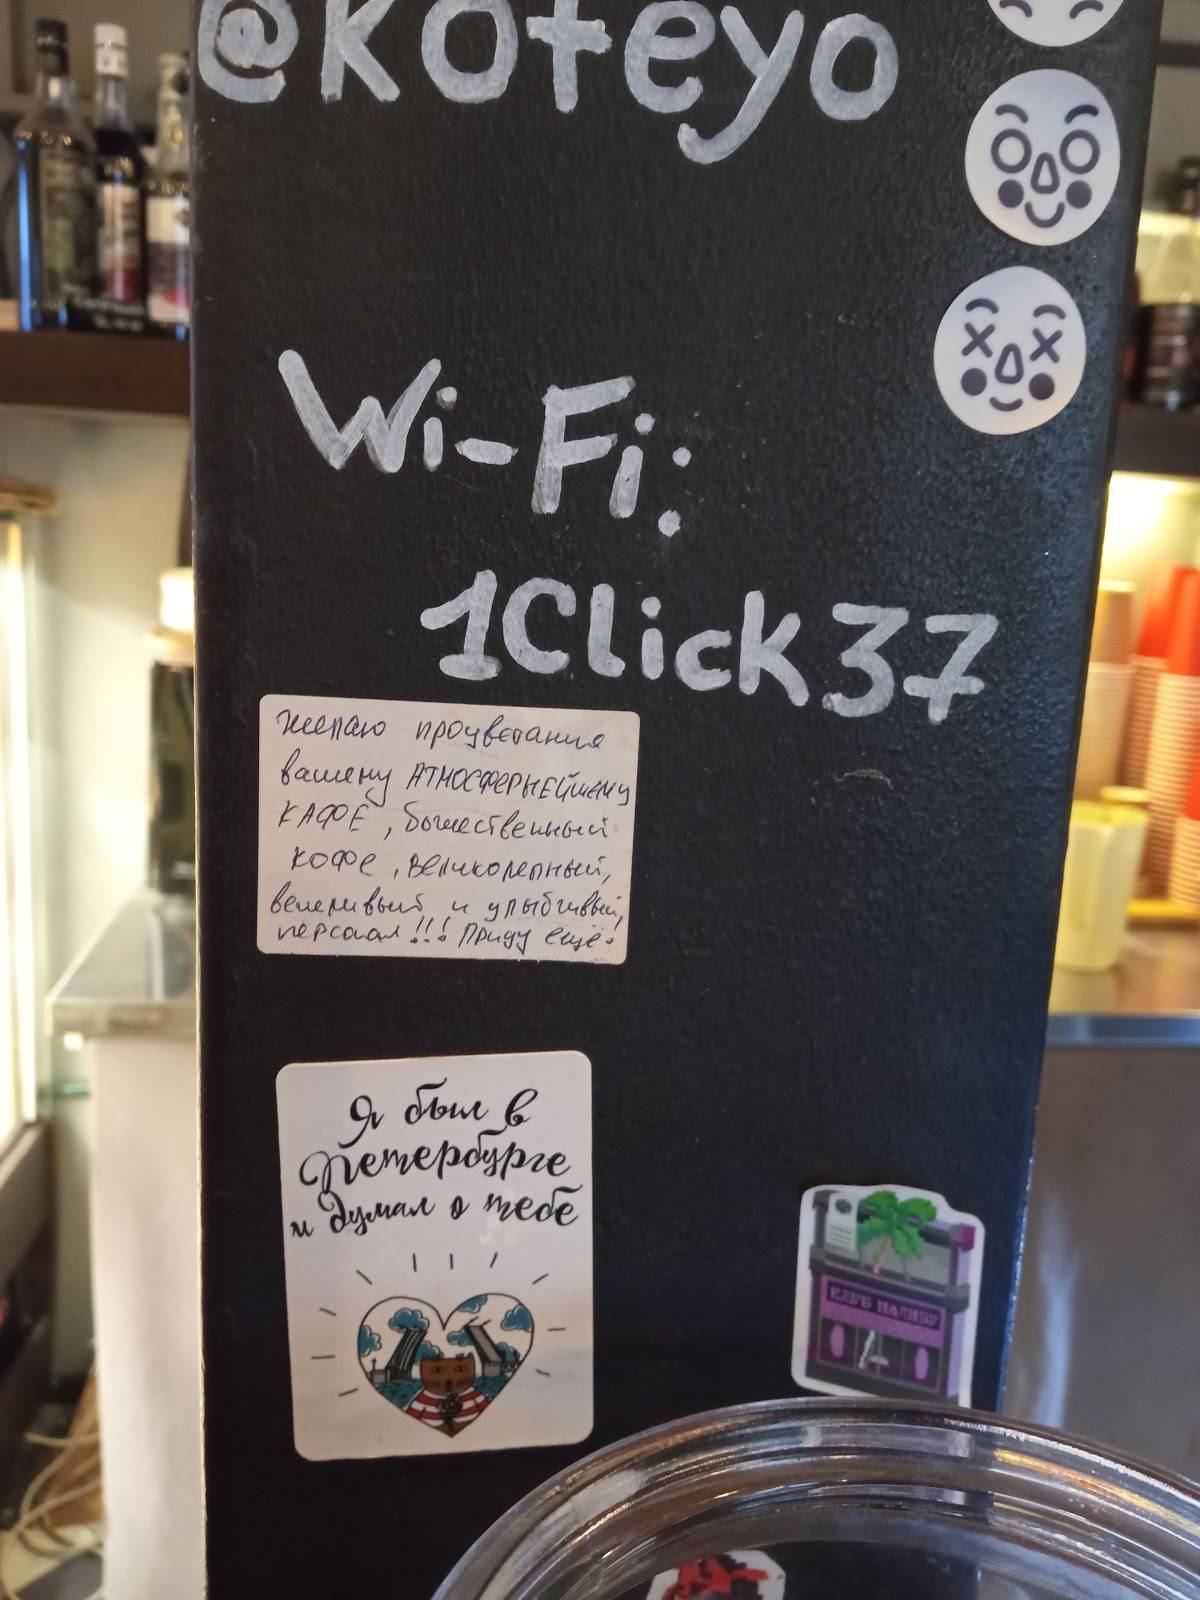 @koteyo
Wi-Fi:
1Click37
Желаю процветания
вашему АТМОСФЕРНЕЙШЕМУ
КАФЕ, божественный
кофе, великолепный,
вежливый и улыбчивый,
персонал!!! Приду ещё.
Я был в
Петербурге
и думал о тебе
КЛУБ МАЛИБУ